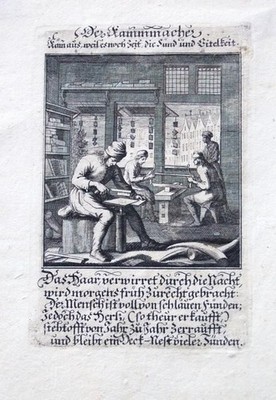 Der Kammmacher.
Kom aus, weil es noch Zeit, die Sünd und Eitelkeit.
Das Haar, verwirret durch die Nacht
wird morgens früh zu recht gebracht.
Der Mensch ist voll von schlauen Funden,
Jedoch das Hertz, (so theür erkaufft,)
steht offt von Jahr zu Jahr zerraufft,
und bleibt ein Deck-Nest vieler Sünden.